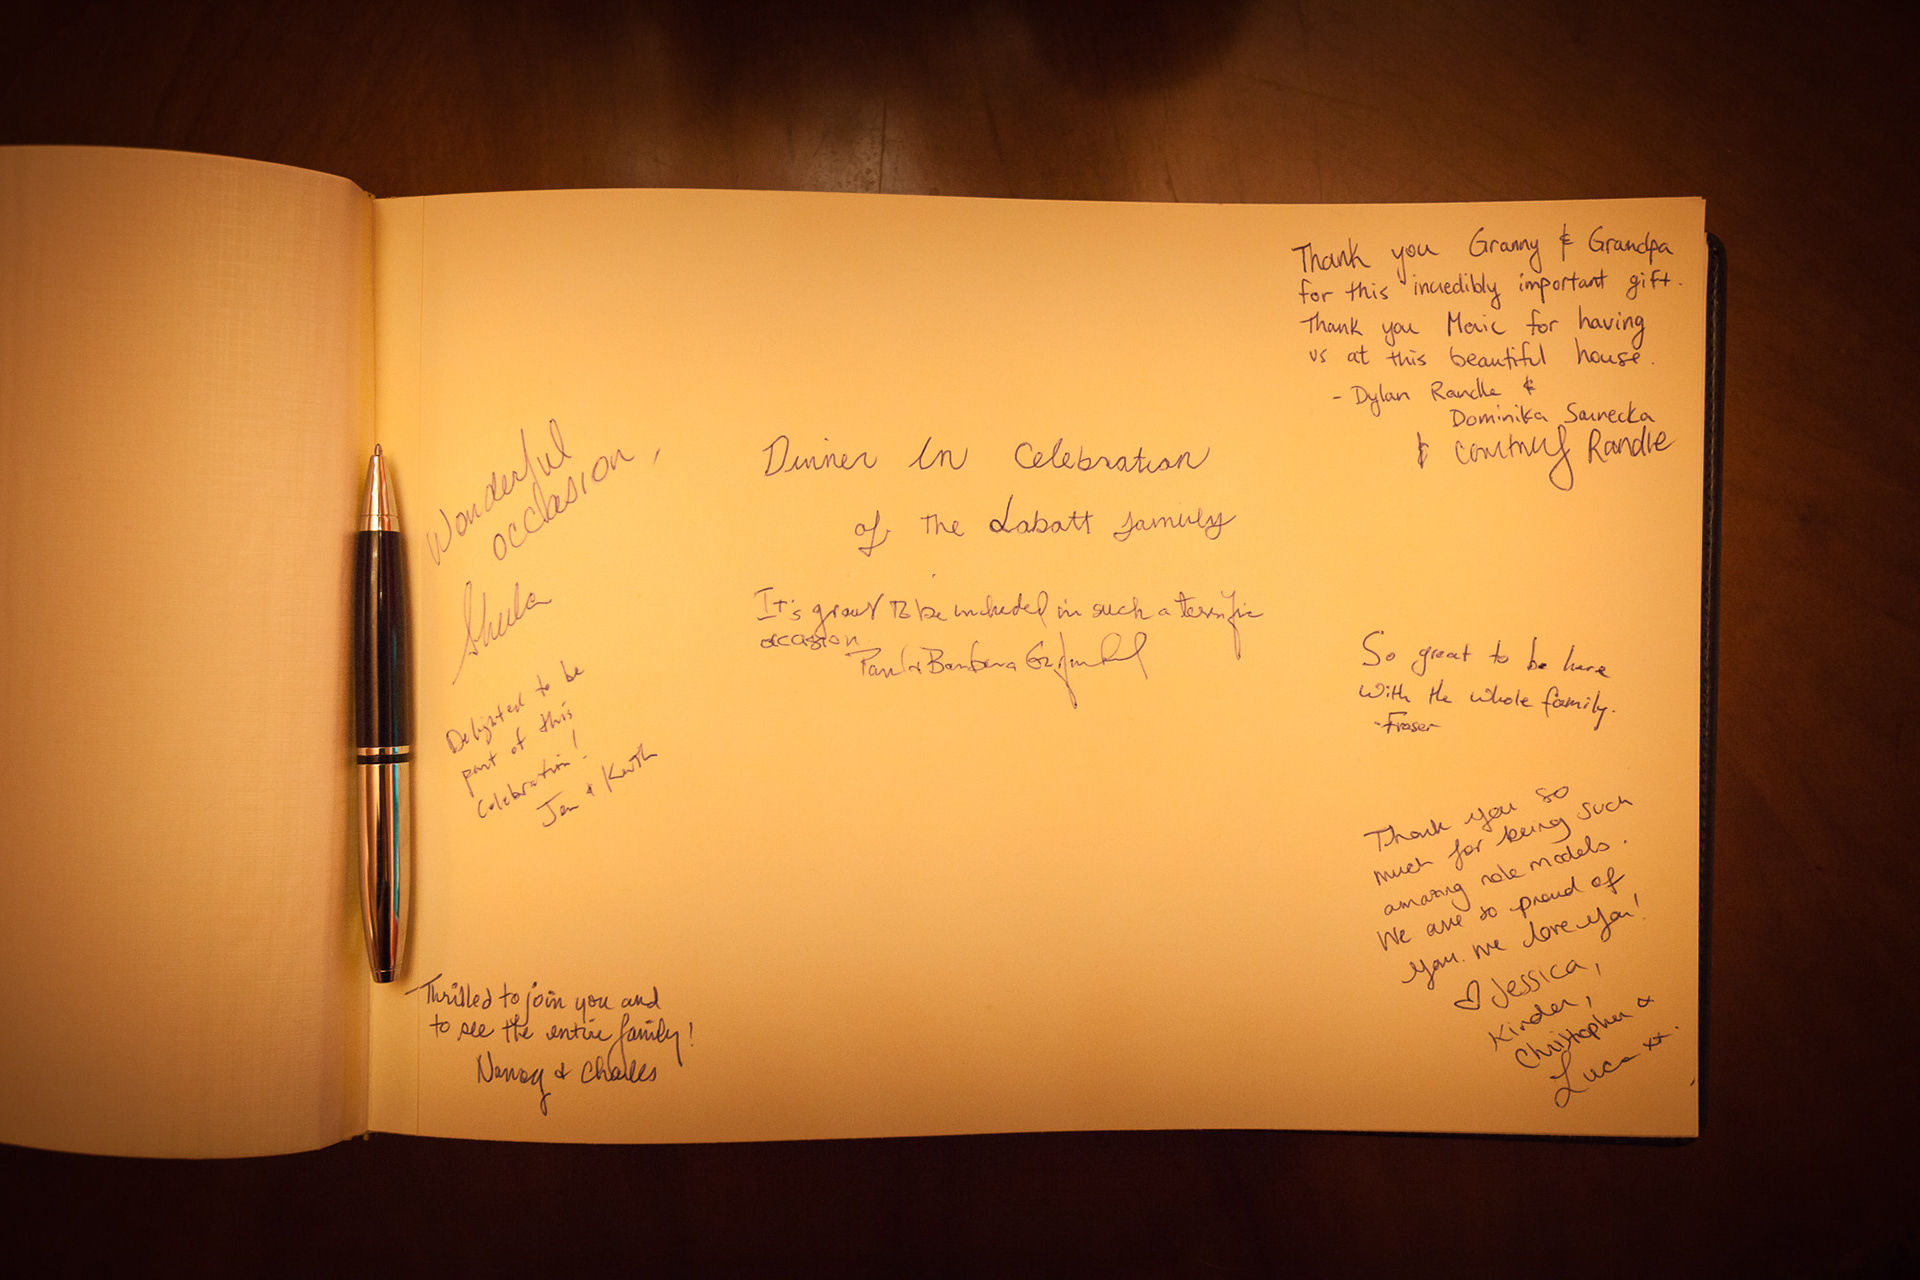 Wonderful
occasion,
Sheila
Delighted to be
part of this
celebration!
Jen + Keith
Thrilled to join you and
to see the entire family!
Nancy & Charles
Dinner in Celebration
of the Labatt family
It's great to be included in such a terrific
occasion.
Paul & Barbara
Thank you Granny & Grandpa
for this incredibly important gift.
Thank you for having
us at this beautiful house.
- Dylan Randle &
Dominika
& Courtney Randle
So great to be here
with the whole family.
-Fraser
Thank you so
much for being such
amazing role models.
We are so proud of
you. We love you!
♡ Jessica,
Kinder,
Christopher &
Luca xx